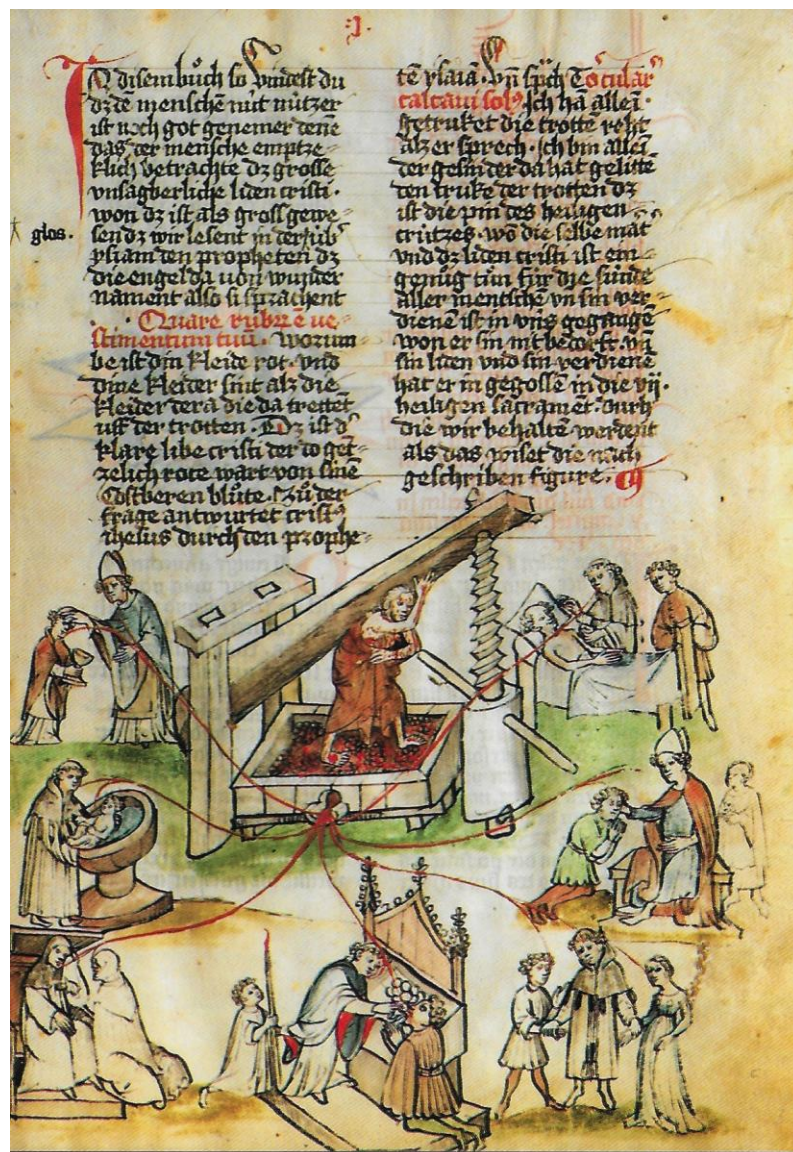 .j.
IN disem bůch so vindest du
dz dē menschē nüt nützer
ist noch got genemer denē
das der mensche emptze-
klich betrachte dz grosse
vnsagberliche liden cristi.
won dz ist als gross gewe-
glos.
sen dz wir lesent in der
ysiam den propheten dz
die engel da von wunder
nament also si sprachent
Quare rubrū ē ve
stimentum tuū. worum
be ist din kleide rot. vnd
dine kleider sint alz die
kleider der a die da trettēt
uff der trotten. Dz ist d'
klare libe cristi der do gētz-
zelich rote wart von sinē
costberen blůte. Zů der
frage antwurtet crist'
ihesus durch den prophe-
tē ysaiā. vn̄ sp̄ch Torcular
calcaui solꝰ. Ich hā allein
getruket die trottē reht
alz er sprech. Ich bin allei
der gesin der da hat gelittē
den truke der trotten dz
ist die pin des heiligen
crützes. wō die selbe mat
vnd dz liden cristi ist ein
genůg tůn für die sünde
aller mentschē vn̄ sin ver-
dienē ist in vns gegangē
won er sin nit bedorft. vn̄
sin liden vnd sin verdienē
hat er in gegossē in die vij.
heiligen sacramēt. durh
die wir behaltē werdent
als das wiset die nach
geschriben figure.